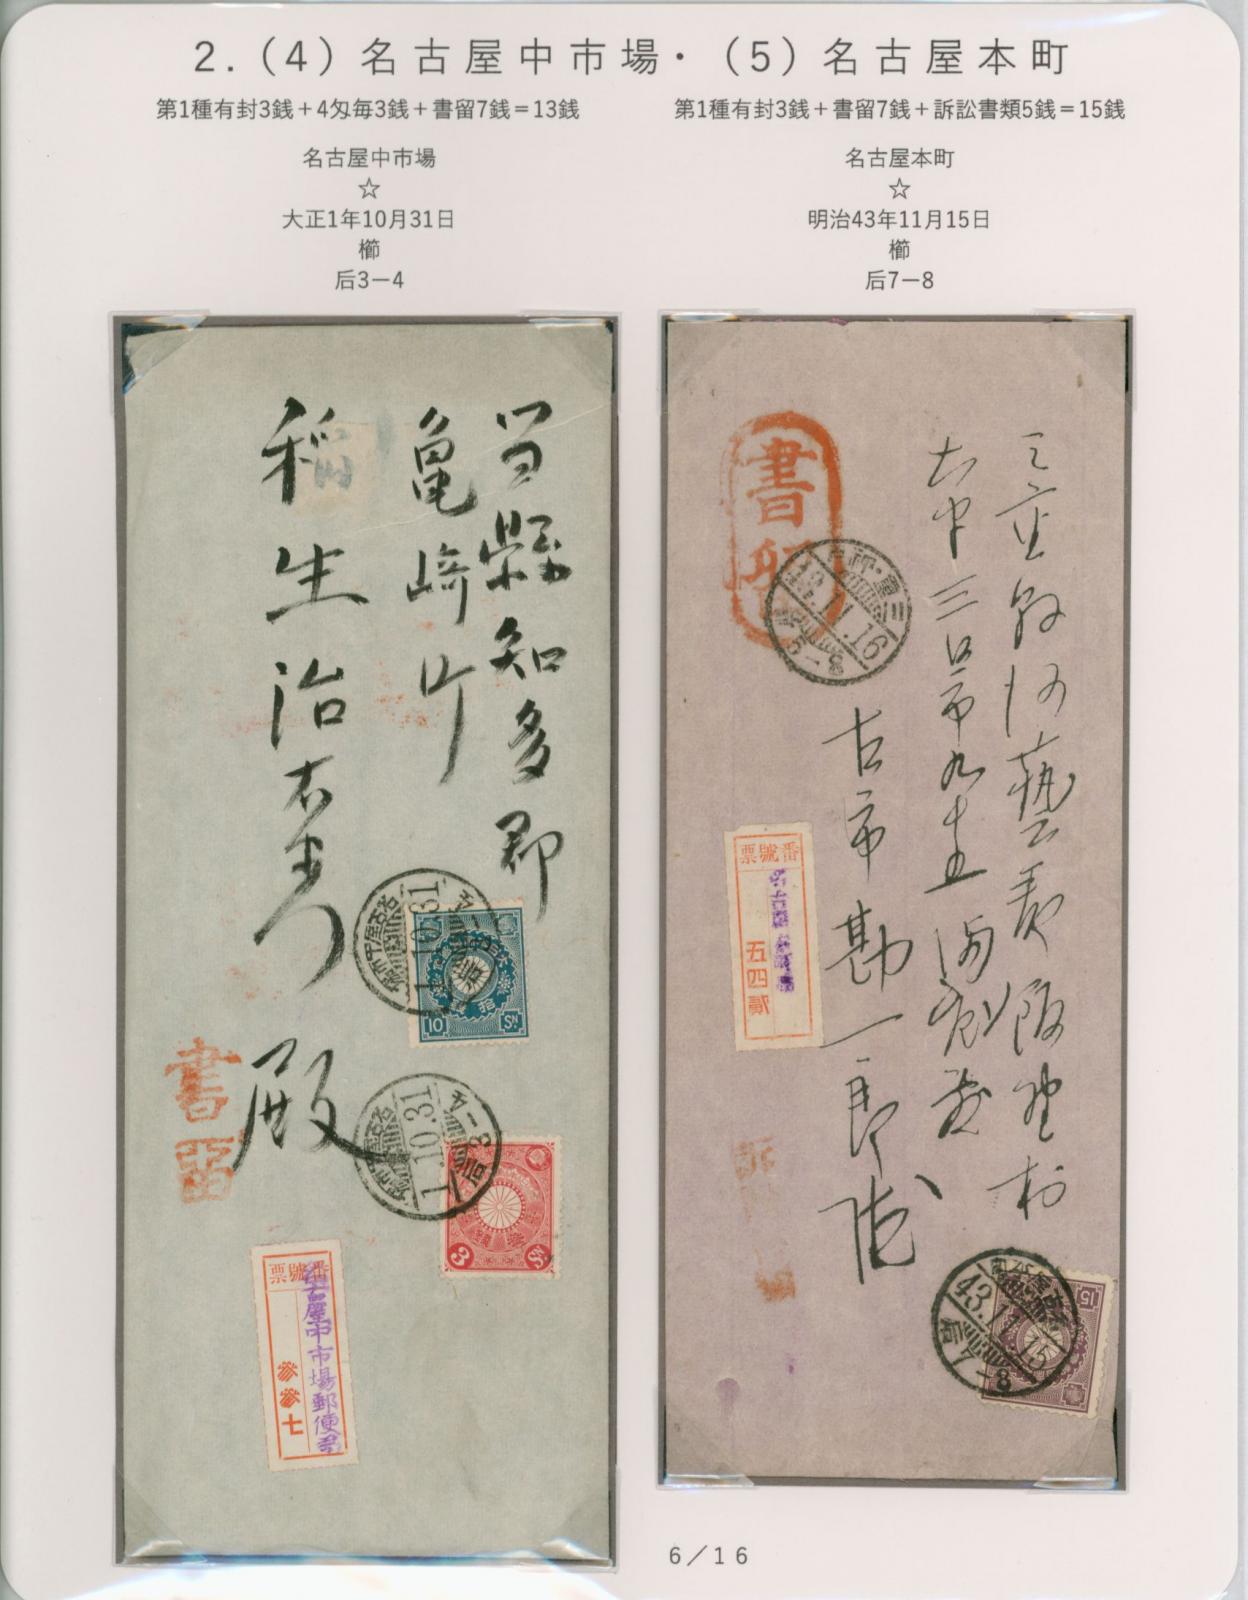 2.(4)名古屋中市場・(5)名古屋本町
第1種有封3銭＋4匁毎3銭＋書留7銭＝13銭
名古屋中市場
☆
大正1年10月31日
櫛
后3－4
第1種有封3銭＋書留7銭＋訴訟書類5銭＝15銭
名古屋本町
☆
明治43年11月15日
櫛
后7－8
縣知多郡
亀崎町
稲生治右衛門
殿
書留
票號番
名古屋中市場郵便局
参参七
1.10.31
10
SN
1.10.31
3
書留
三重
12.11.16
古市勘一郎
票號番
五四貳
43.11.15
15
6／16